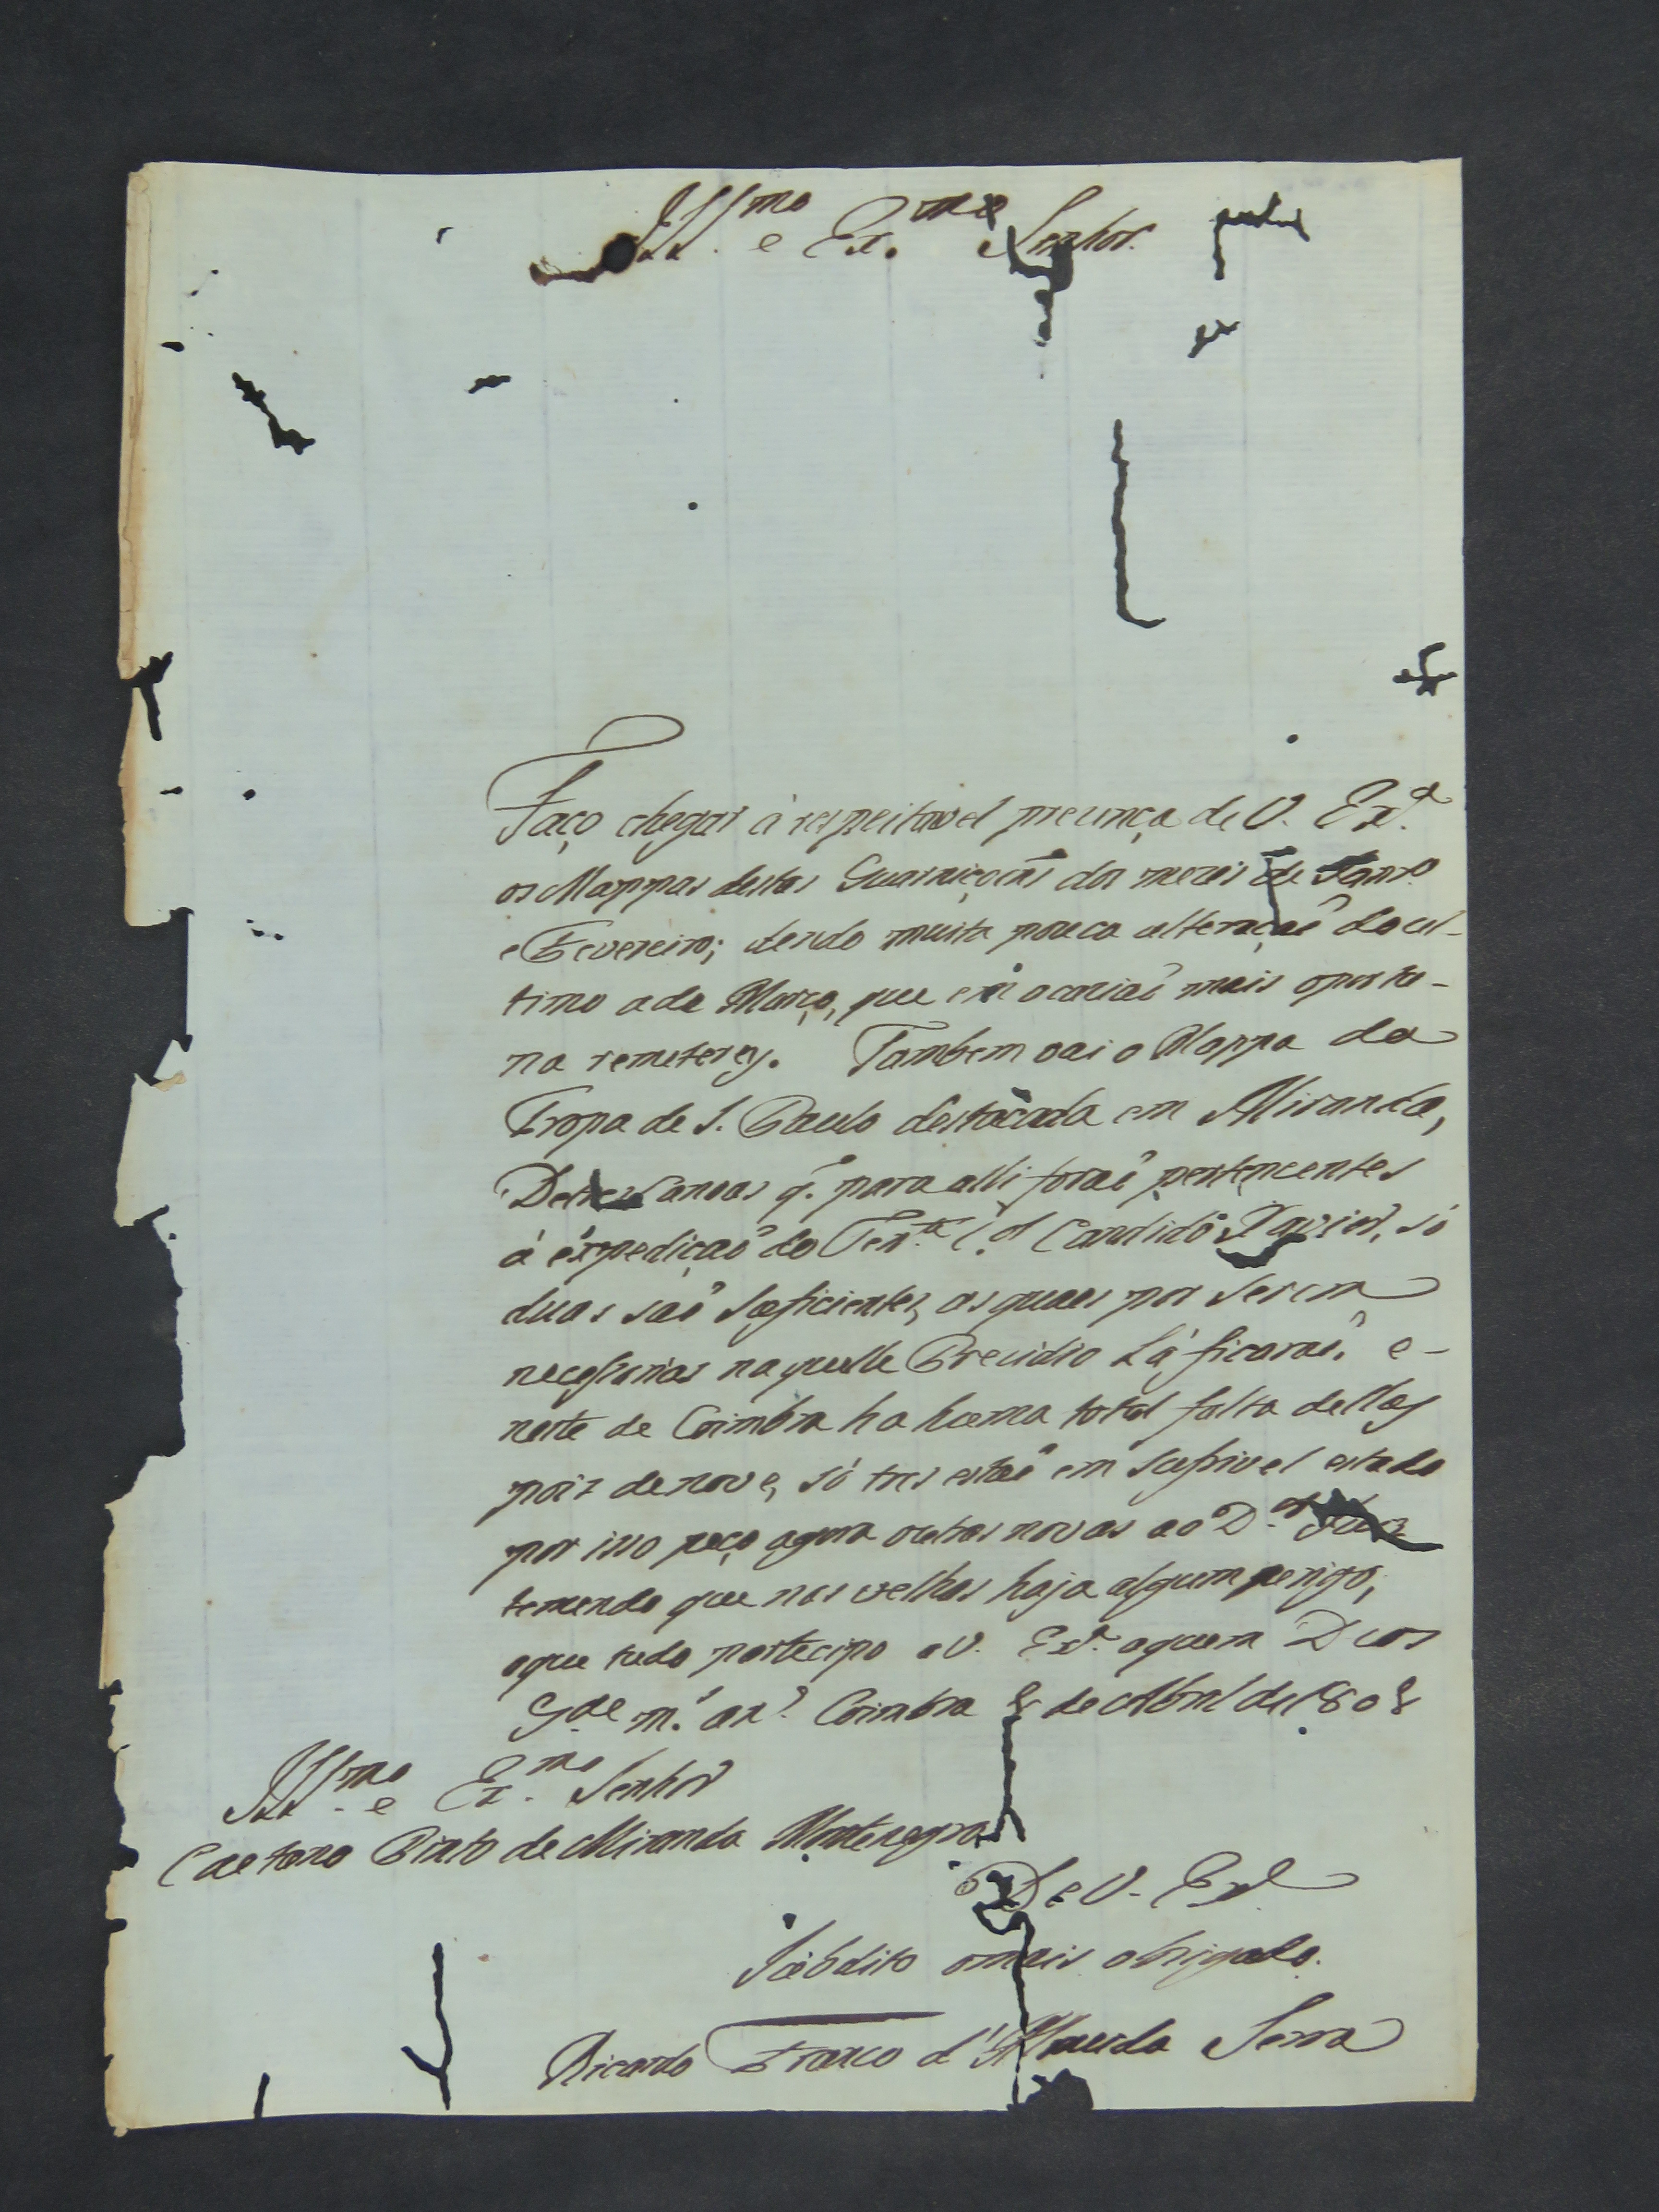 Ill.mo e Ex.mo Senhor
Faço chegar á respeitavel prezença de V. Ex.a
os Mappas destas Guarniçoẽs dos mezes de Janr.o
e Fevereiro; sendo muita pouca alteraçaõ do ul-
timo a de Março, que em ocaziaõ mais oportu-
na remeterey. Tambem vai o Mappa da
Tropa de S. Paulo destacada em Miranda,
De tres Canoas q. para alli foraõ pertencentes
á expediçaõ do Ten.te C.el Candido Xavier, só
duas saõ suficientes, as quaes por serem
necessarias naquelle Prezidio Lá ficaraõ. e
neste de Coimbra ha huma total falta dellas
poiz de nove, só tres estaõ em sufrivel estado
por isso peço agora outras novas ao D.or Juiz
temendo que nas velhas haja algum perigo,
o que tudo partecipo a V. Ex.a a quem Deos
G.de m.s an.s Coimbra 8 de Abril de 1808
Ill.mo e Ex.mo Senhor
Caetano Pinto de Miranda Montenegro
De V. Ex.a
Subdito o mais obrigado.
Ricardo Franco d'Almeida Serra